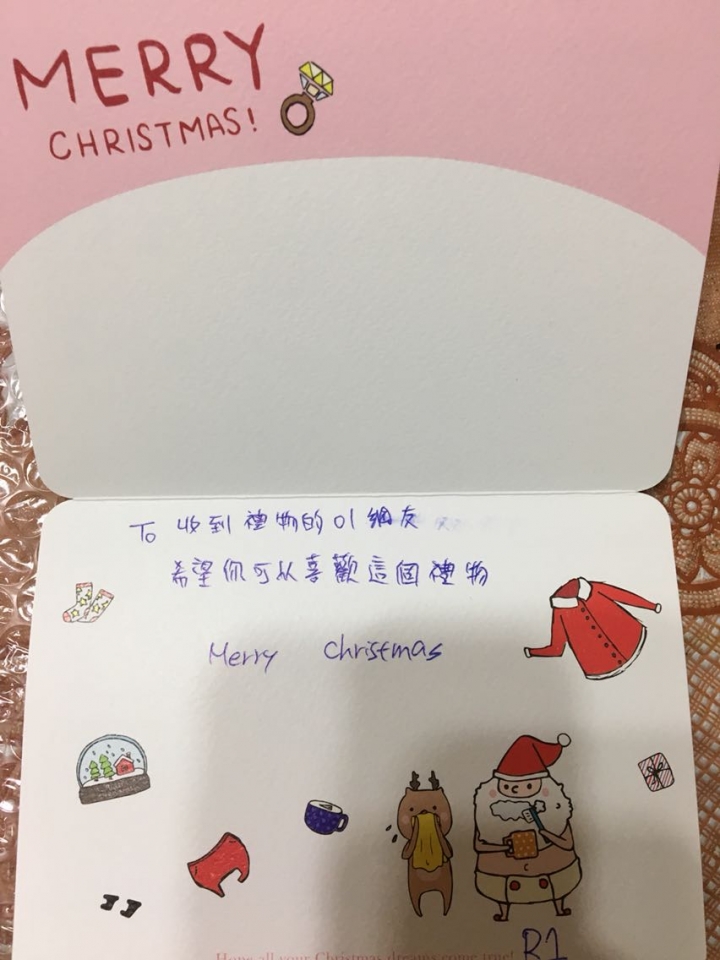 MERRY
CHRISTMAS!
To 收到禮物的01網友
希望你可以喜歡這個禮物
Merry Christmas
Hope all your Christmas dreams come true!